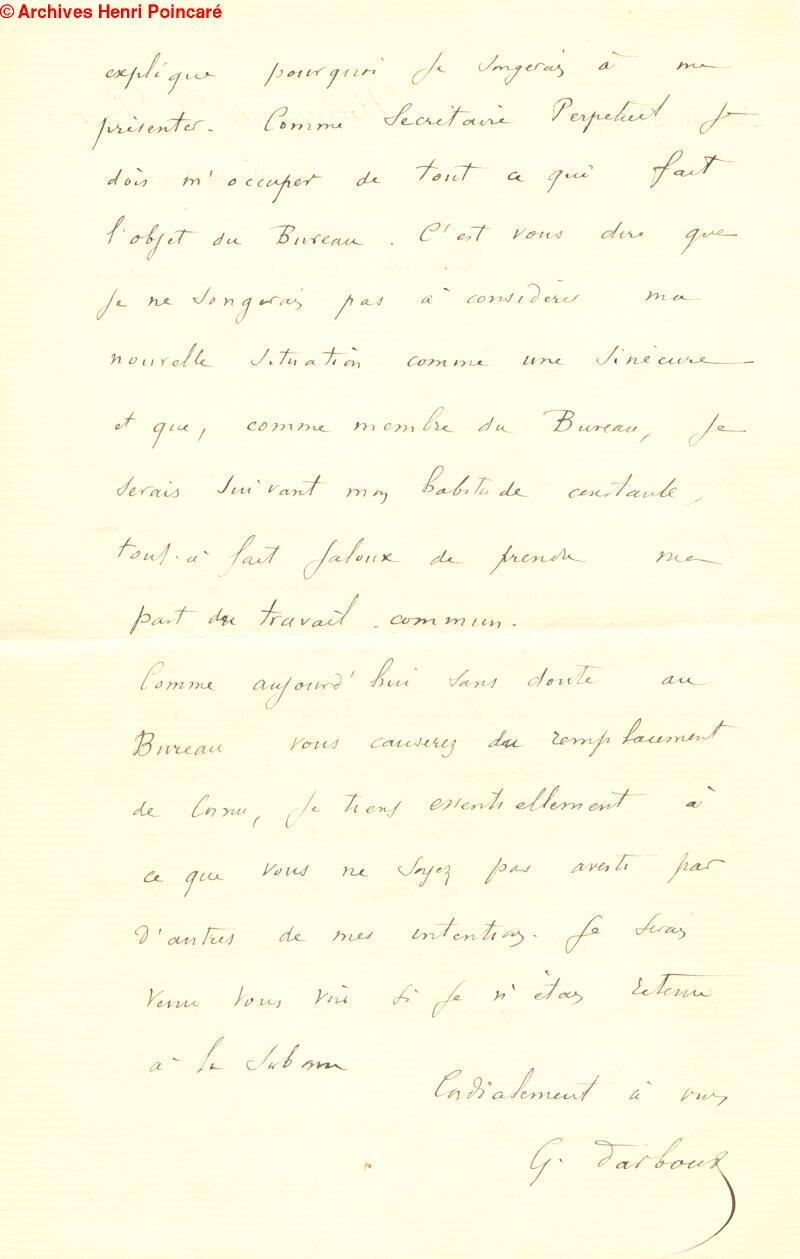 © Archives Henri Poincaré
explique pourquoi je songerais à me
présenter. Comme Secrétaire Perpétuel je
dois m'occuper de tout ce qui fait
l'objet du Bureau. C'est vous dire que
je ne songerais pas à considérer ma
nouvelle situation comme une sinécure
et que, comme membre du Bureau, je
serais suivant mon habitude constante,
tout-à fait jaloux de prendre ma
part du travail commun.
Comme aujourd'hui sans doute au
Bureau vous causerez du remplacement
de Cornu, je tiens essentiellement à
ce que vous ne soyez pas averti par
d'autres de mes intentions. Je serais
venu vous voir si je n'étais retenu
à la Sorbonne
Cordialement à vous
G. Darboux